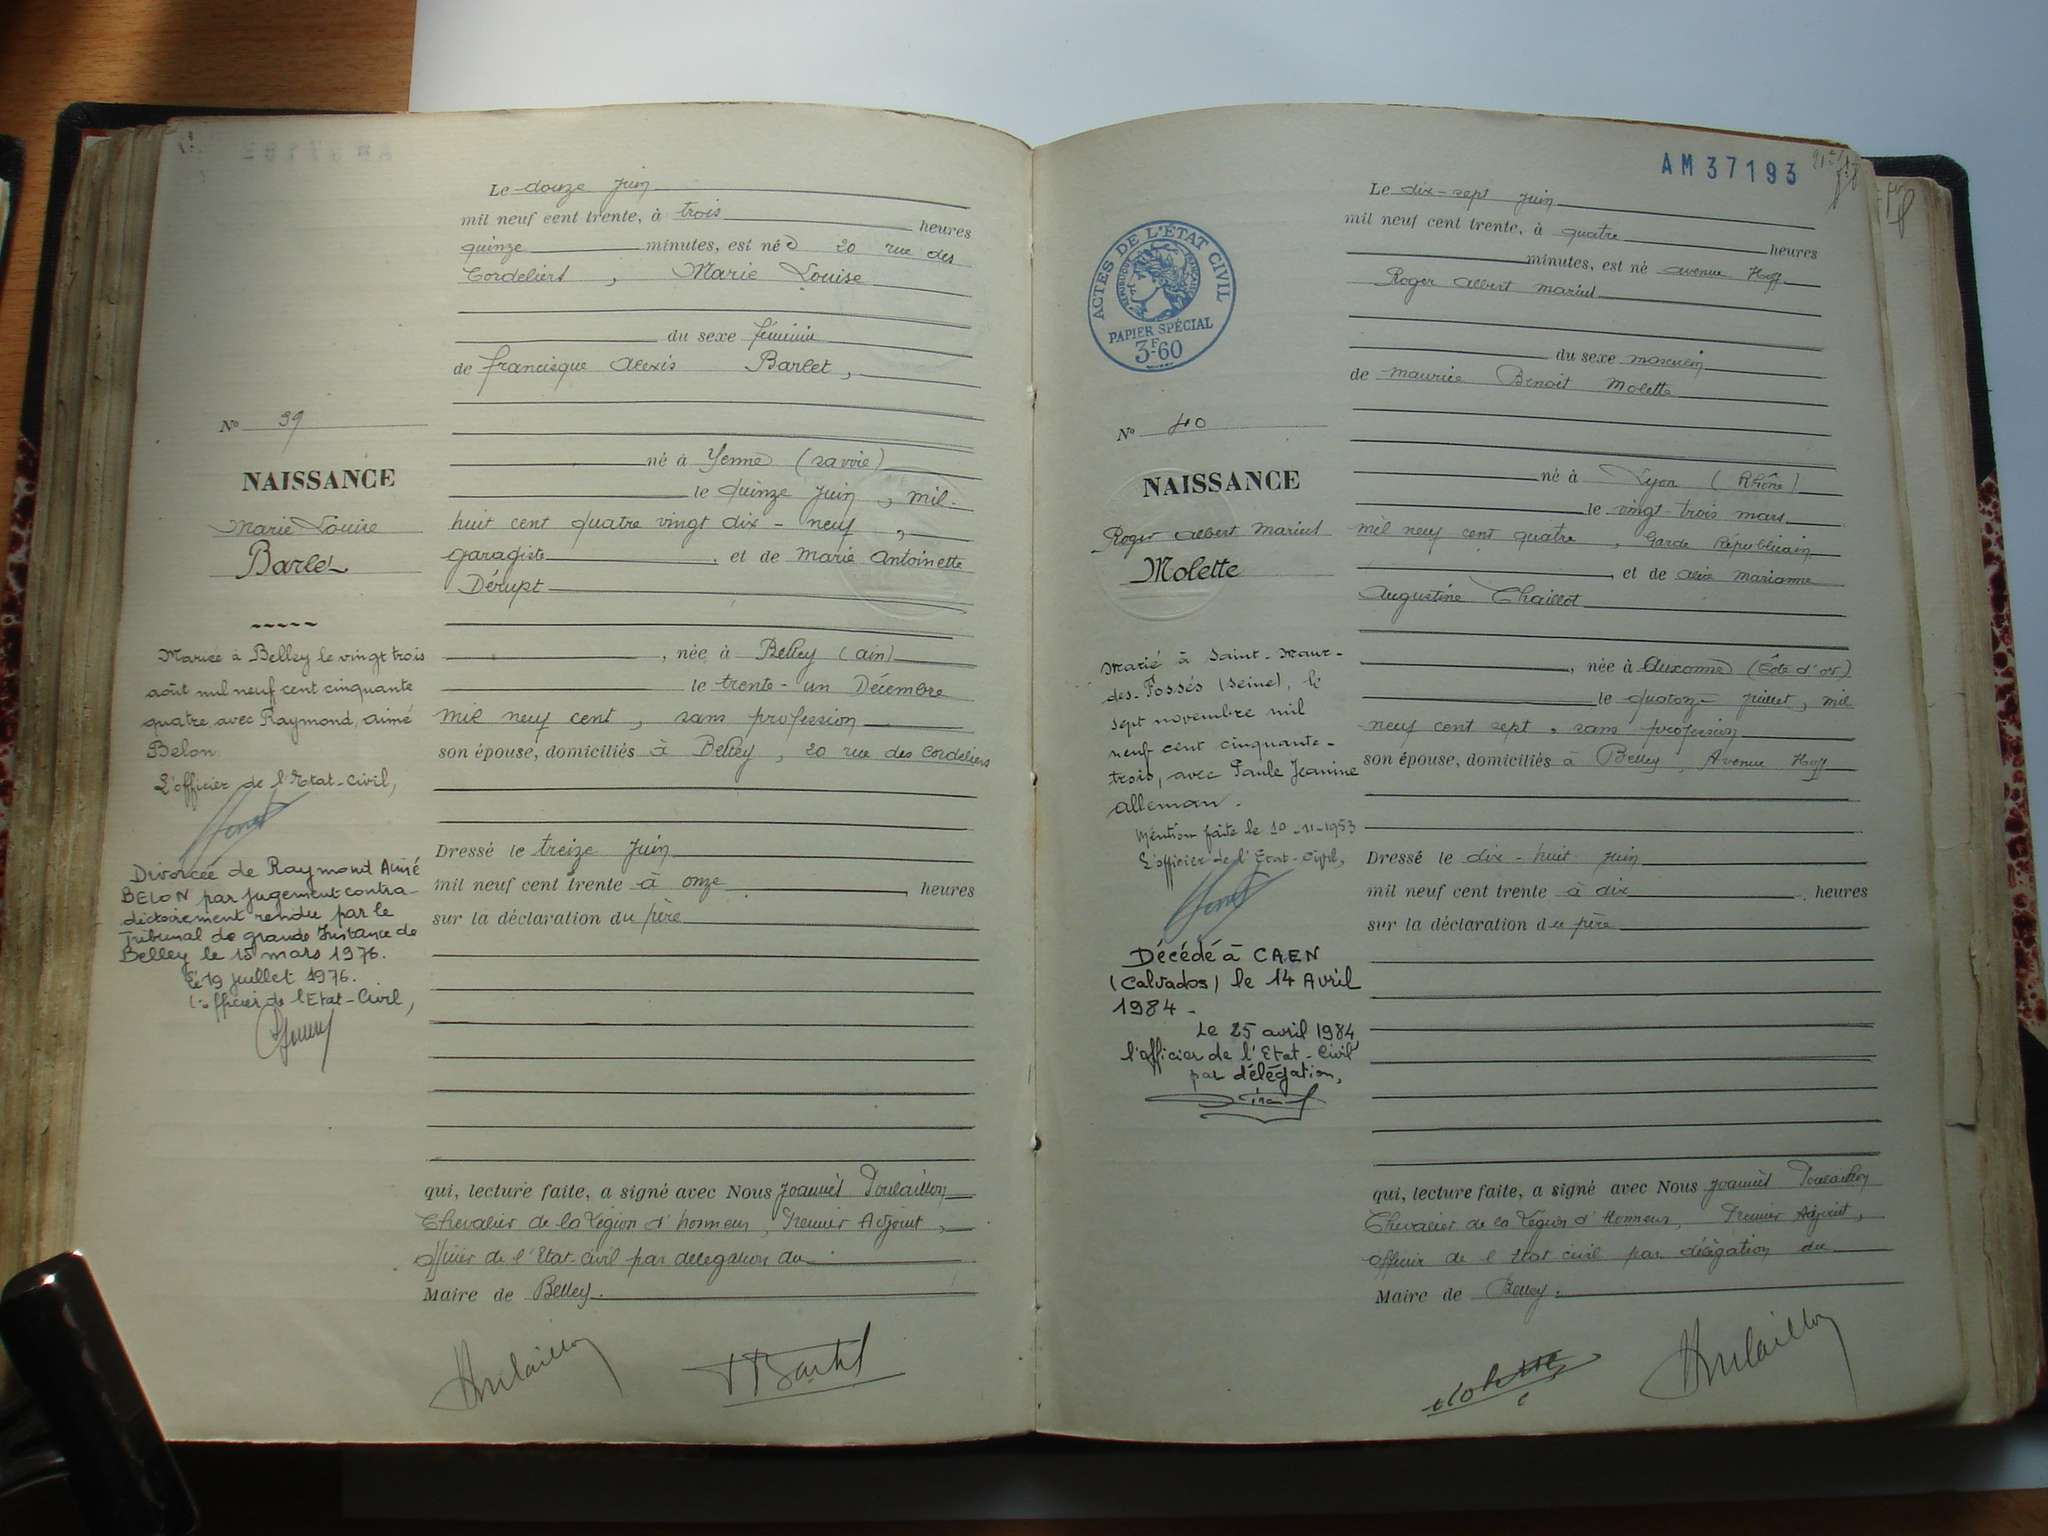 Le douze Juin
mil neuf cent trente, à trois heures
quinze minutes, est née 20 rue des
Cordeliers, Marie Louise
du sexe féminin
de francisque Alexis Barlet,
né à Yenne (Savoie)
le quinze Juin, mil
huit cent quatre vingt dix-neuf,
garagiste, et de Marie Antoinette
Dérupt
, née à Belley (Ain)
le trente-un Décembre
mil neuf cent, sans profession
son épouse, domiciliés à Belley, 20 rue des Cordeliers
Dressé le treize Juin
mil neuf cent trente à onze heures
sur la déclaration du père
qui, lecture faite, a signé avec Nous Joannès Poulaillon
Chevalier de la Légion d'honneur, Premier Adjoint,
officier de l'Etat-Civil par délégation du
Maire de Belley.
Poulaillon
Barlet
No 39
NAISSANCE
Marie Louise
Barlet
Mariée à Belley le vingt trois
août mil neuf cent cinquante
quatre avec Raymond, aimé
Belon.
L'officier de l'Etat-Civil,
Divorcée de Raymond Aimé
BELON par jugement contra-
dictoirement rendu par le
Tribunal de grande Instance de
Belley le 15 mars 1976.
Le 19 juillet 1976.
L'officier de l'Etat-Civil,
AM 37193
Le dix-sept Juin
mil neuf cent trente, à quatre heures
minutes, est né avenue Hoff
Roger Albert Marius
du sexe masculin
de Maurice Benoit Molette
né à Lyon (Rhône)
le vingt-trois mars
mil neuf cent quatre, Garde Républicain
, et de Alice Marianne
Augustine Chaillot
, née à Auxonne (Côte d'or)
le quatorze Juillet, mil
neuf cent sept, sans profession
son épouse, domiciliés à Belley, Avenue Hoff
Dressé le dix-huit Juin
mil neuf cent trente à dix heures
sur la déclaration du père
qui, lecture faite, a signé avec Nous Joannès Poulaillon
Chevalier de la Légion d'Honneur, Premier Adjoint,
officier de l'Etat civil par délégation du
Maire de Belley.
Molette
Poulaillon
ACTES DE L'ÉTAT CIVIL
RÉPUBLIQUE FRANÇAISE
PAPIER SPÉCIAL
3F60
No 40
NAISSANCE
Roger Albert Marius
Molette
Marié à Saint-Maur-
des-Fossés (Seine), le
sept novembre mil
neuf cent cinquante-
trois, avec Paule Jeanine
Alleman.
Mention faite le 10-11-1953
L'officier de l'Etat-Civil,
Décédé à CAEN
(Calvados) le 14 Avril
1984 -
Le 25 avril 1984
l'officier de l'Etat-Civil
par délégation,